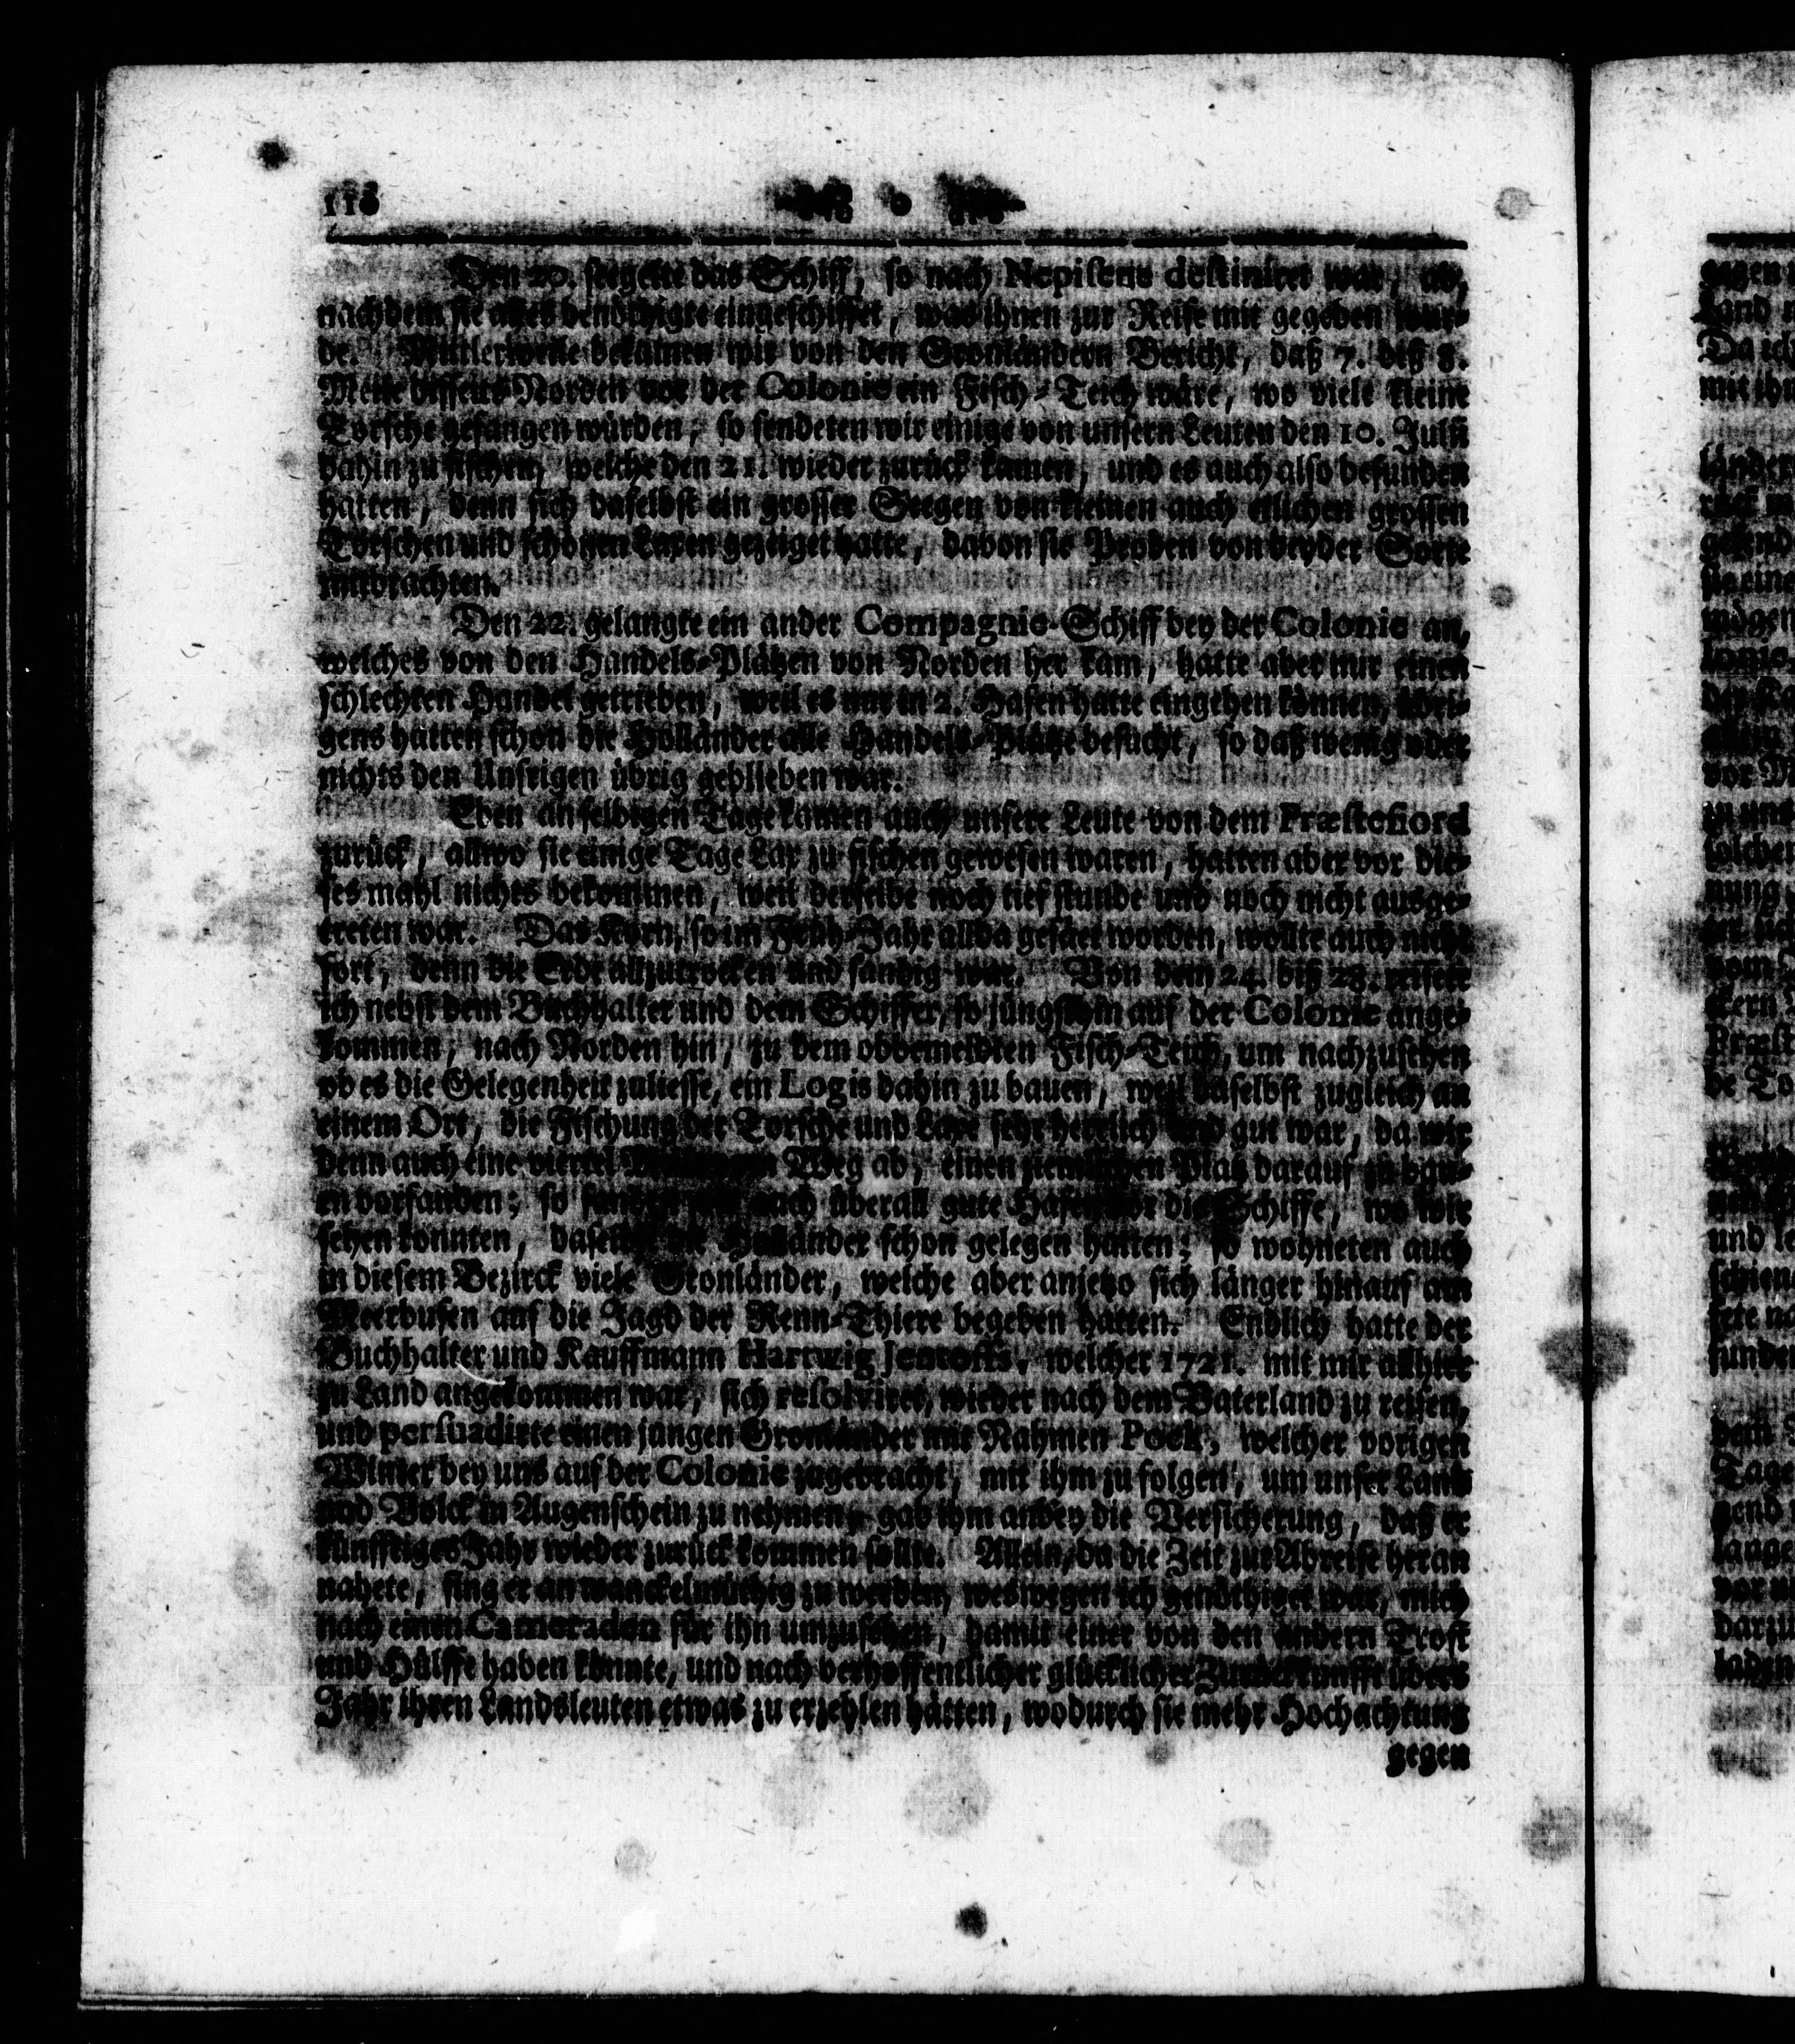 116
o
Den 20. seegelte das Schiff, so nach Nepisene destiniret war, ab,
nachdem sie alles benöthigte eingeschiffet, was ihnen zur Reise mit gegeben wur-
de. Mitlerweile bekamen wir von den Gronländern Bericht, daß 7. biß 8.
Meile disseits Norden vor der Colonie ein Fisch-Teich wäre, wo viele kleine
Torsche gefangen würden, so sendeten wir einige von unsern Leuten den 10. Julii
dahin zu fischen, welche den 21. wieder zurück kamen, und es auch also befunden
hatten, denn sich daselbst ein grosser Seegen von kleinen auch etlichen grossen
Torschen und schönen Laxen gezeiget hatte, davon sie Proben von beyder Sorte
mitbrachten.
Den 22. gelangte ein ander Compagnie-Schiff bey der Colonie an,
welches von den Handels-Plätzen von Norden her kam, hatte aber nur einen
schlechten Handel getrieben, weil es nur in 2. Hafen hatte eingehen können, übri-
gens hatten schon die Holländer alle Handels-Plätze besucht, so daß wenig oder
nichts den Unsrigen übrig geblieben war.
Eben an selbigen Tage kamen auch unsere Leute von dem Præstefiord
zurück, allwo sie einige Tage Lax zu fischen gewesen waren, hatten aber vor die-
ses mahl nichts bekommen, weil derselbe noch tief stunde und noch nicht ausge-
treten war. Das Korn, so im Früh-Jahr allda gesäet worden, wollte auch nicht
fort, denn die Erde allzutrocken und sandig war. Von dem 24. biß 28. reisete
ich nebst dem Buchhalter und dem Schiffer, so jüngsthin auf der Colonie ange-
kommen, nach Norden hin, zu dem obbemeldten Fisch-Teich, um nachzusehen
ob es die Gelegenheit zuliesse, ein Logis dahin zu bauen, weil daselbst zugleich an
einem Ort, die Fischung der Torsche und Laxe sehr herrlich und gut war, da wir
denn auch eine viertel Weg ab, einen ziemlichen Platz darauf zu bau-
en vorfanden; so auch überall gute Hafen vor die Schiffe, wo wir
sehen konnten, daselbst die Holländer schon gelegen hatten; so wohneten auch
in diesem Bezirck viele Gronländer, welche aber anjetzo sich länger hinauf am
Meerbusen auf die Jagd der Renn-Thiere begeben hatten. Endlich hatte der
Buchhalter und Kauffmann Hartwig Jentofts, welcher 1721. mit mir allhier
zu Land angekommen war, sich resolviret, wieder nach dem Vaterland zu reisen,
und persuadirte einen jungen Gronländer mit Nahmen Poek, welcher vorigen
Winter bey uns auf der Colonie zugebracht, mit ihm zu folgen, um unser Land
und Volck in Augenschein zu nehmen, gab ihm anbey die Versicherung, daß er
künfftiges Jahr wieder zurück kommen sollte. Allein, da die Zeit zur Abreise heran
nahete, fing er an wanckelmüthig zu werden, weswegen ich genöthiget war, mich
nach einen Cameraden für ihn umzusehen, damit einer von den andern Trost
und Hülffe haben könnte, und nach verhoffentlicher glücklicher Zurückkunfft übers
Jahr ihren Landsleuten etwas zu erzehlen hätten, wodurch sie mehr Hochachtung
gegen